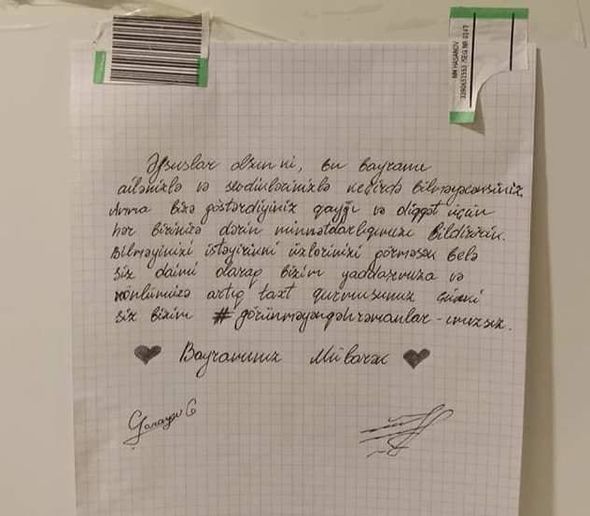 MN HASANOV
Əfsuslar olsun ki, bu bayramı
ailənizlə və sevdiklərinizlə keçirdə bilməyəcəksiniz,
Amma bizə göstərdiyiniz qayğı və diqqət üçün
hər birinizə dərin minnətdarlığımızı bildiririk.
Bilməyinizi istəyirikki üzlərinizi görməsək belə
siz daimi olaraq bizim yaddaşımıza və
könlümüzə artıq taxt qurmusunuz çünki
siz bizim #görünməyənqəhrəmanlar-ımızsız.
Bayramınız Mübarək